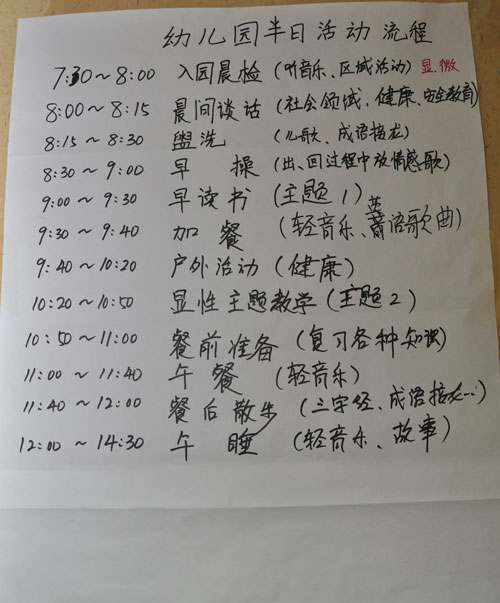 幼儿园半日活动流程
7:30～8:00 入园晨检（听音乐、区域活动）显微
8:00～8:15 晨间谈话（社会领域、健康、安全教育）
8:15～8:30 盥洗（儿歌、成语接龙）
8:30～9:00 早操（出、回过程中放情感歌）
9:00～9:30 早读书（主题1）
9:30～9:40 加餐（轻音乐、英语歌曲）
9:40～10:20 户外活动（健康）
10:20～10:50 显性主题教学（主题2）
10:50～11:00 餐前准备（复习各种知识）
11:00～11:40 午餐（轻音乐）
11:40～12:00 餐后散步（三字经、成语接龙…）
12:00～14:30 午睡（轻音乐、故事）